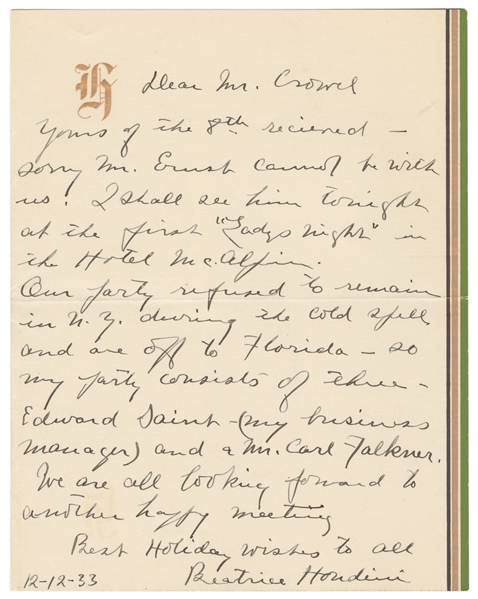 H
Dear Mr. Crowel
Yours of the 8th recieved -
sorry Mr. Ernst cannot be with
us. I shall see him tonight
at the first "Ladys Night" in
the Hotel Mc.Alpin.
Our party refused to remain
in N.Y. during the cold spell
and are off to Florida - so
my party consists of three -
Edward Saint - (my business
manager) and a Mr. Carl Falkner.
We are all looking forward to
another happy meeting
Best Holiday wishes to all
12-12-33 Beatrice Houdini